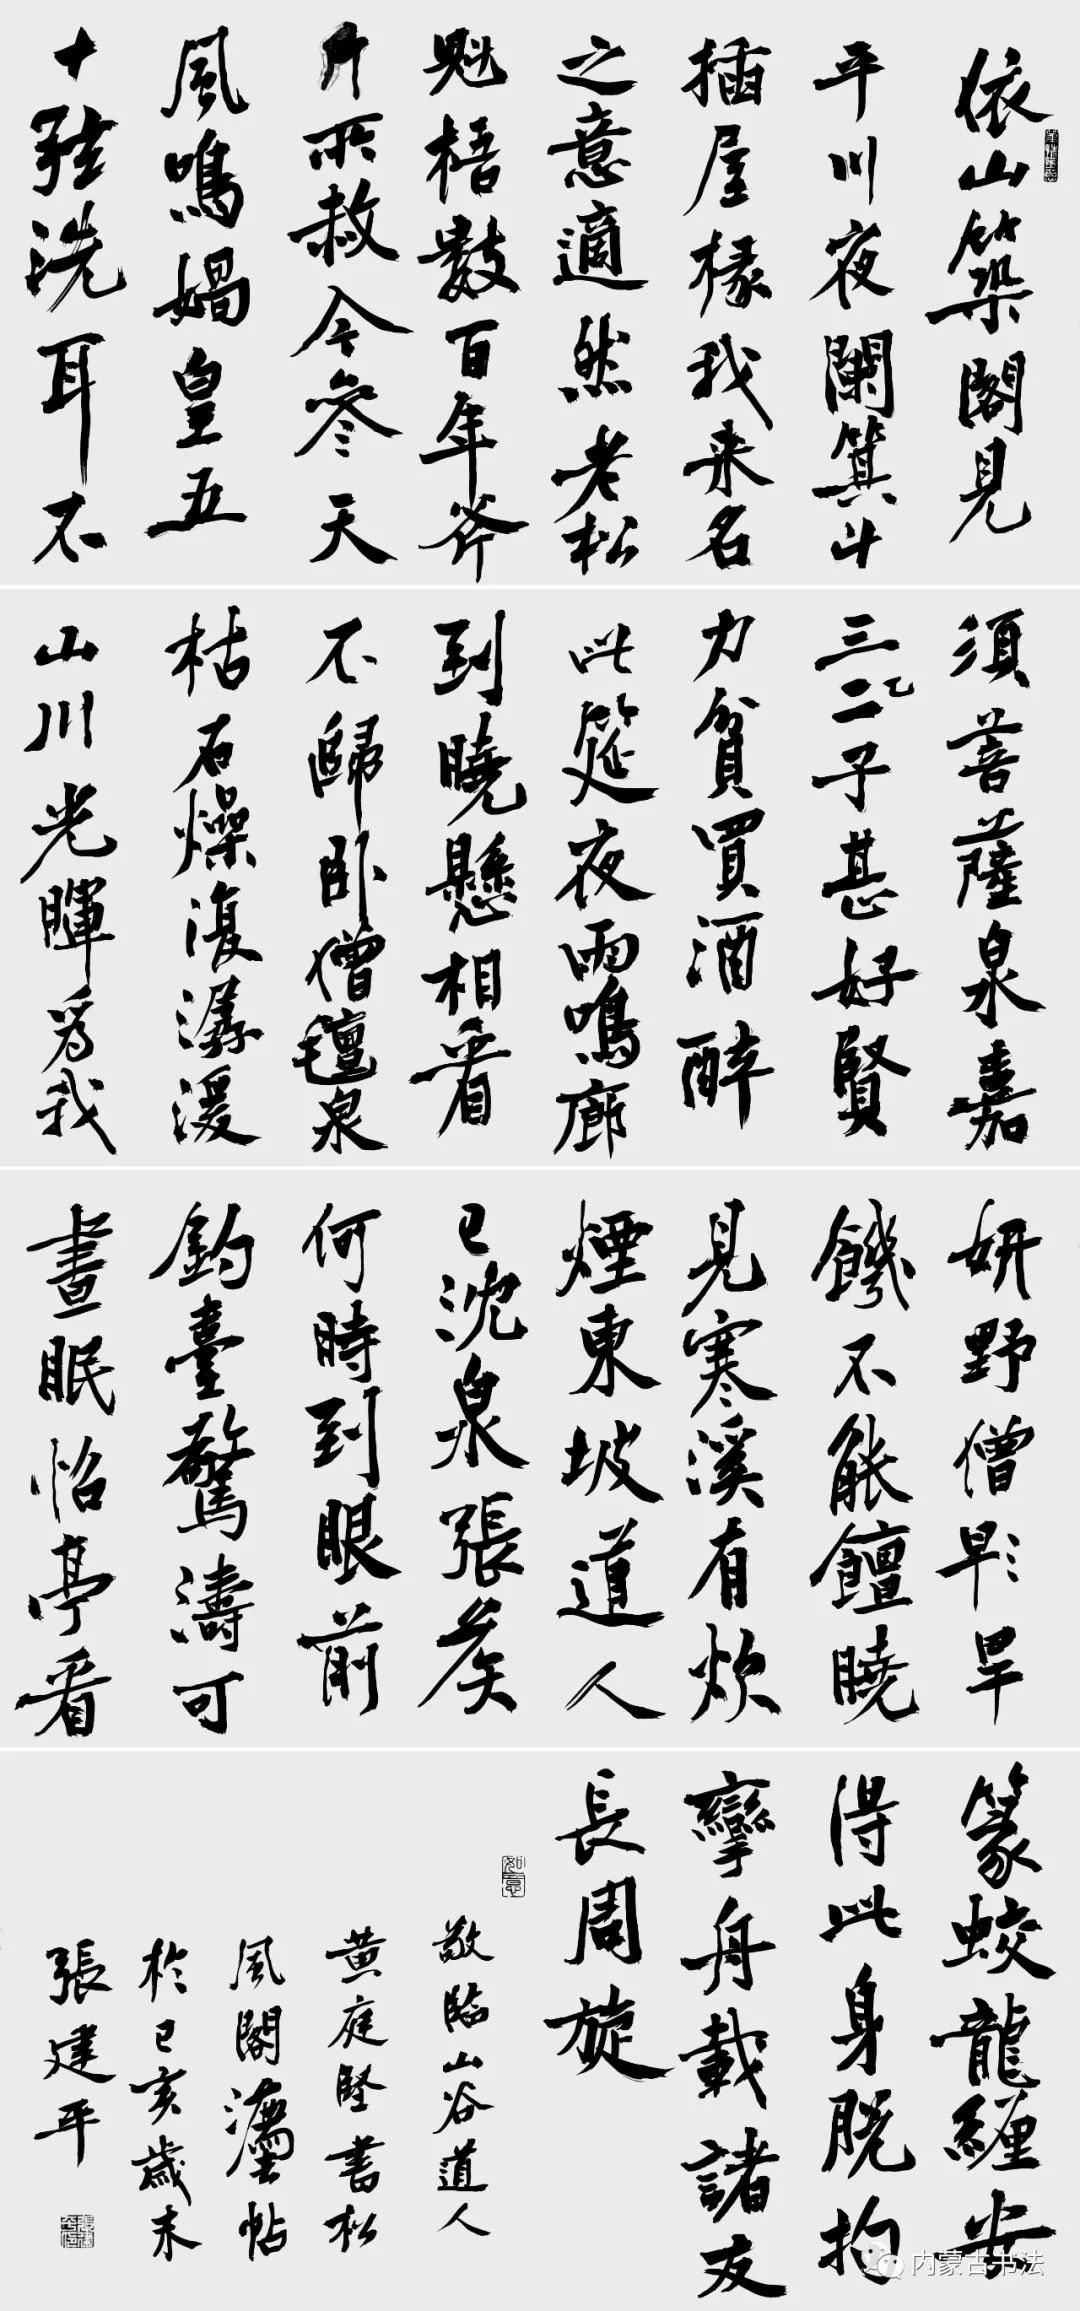 依山築閣見
平川夜闌箕斗
插屋椽我来名
之意適然老松
魁梧數百年斧
斤所赦今參天
風鳴媧皇五
十弦洗耳不
須菩薩泉嘉
三二子甚好賢
力貧買酒醉
此筵夜雨鳴廊
到曉懸相看
不歸卧僧氊泉
枯石燥復潺湲
山川光暉為我
妍野僧早旱
饑不能饘曉
見寒溪有炊
煙東坡道人
已沈泉張矦
何時到眼前
釣臺驚濤可
晝眠怡亭看
篆蛟龍纏安
得此身脱拘
攣舟載諸友
長周旋
如意
敬臨山谷道人
黄庭堅書松
風閣
帖
於己亥歲末
張建平
内蒙古书法